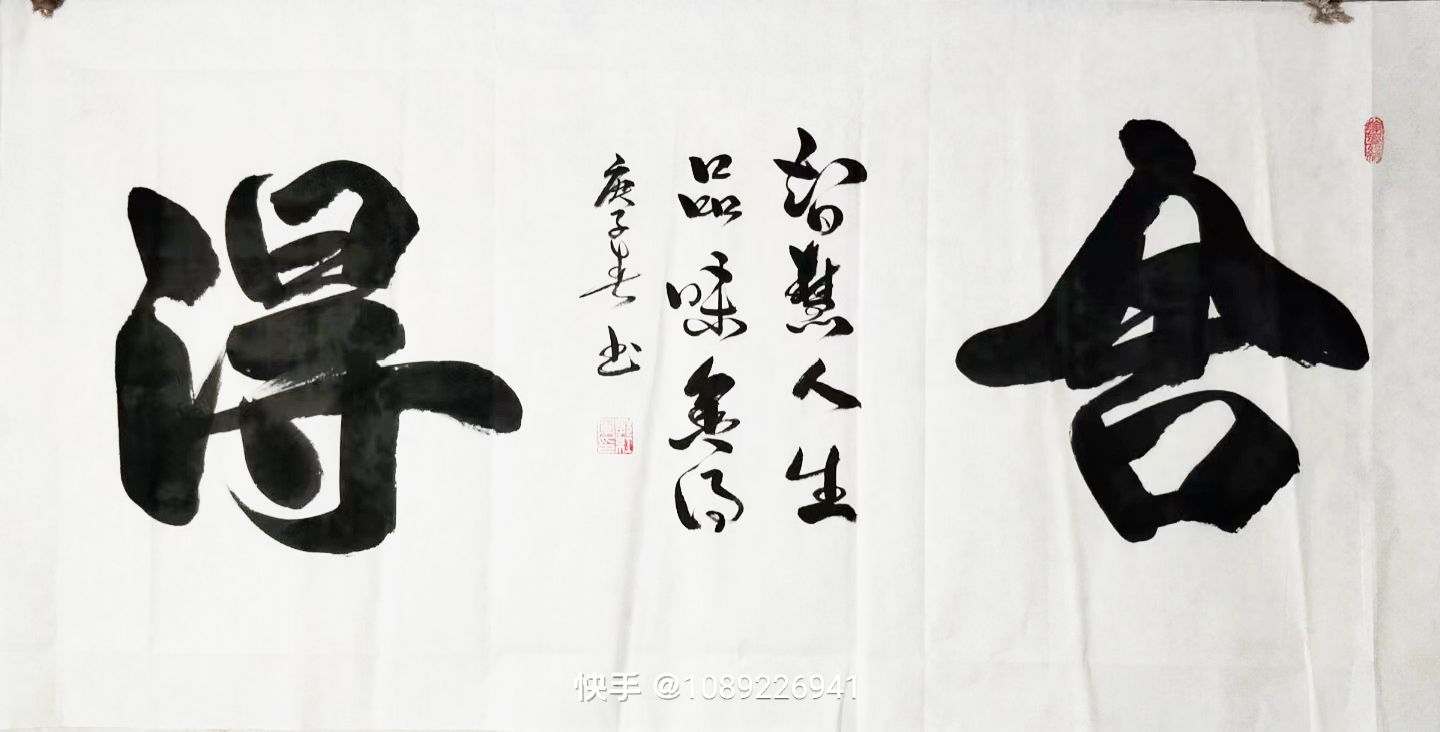 舍
智慧人生
品味舍得
庚子春 书
得
快手 @1089226941